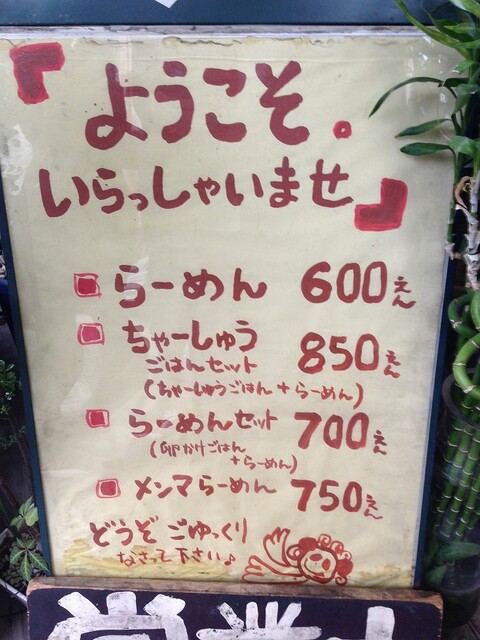 『ようこそ.
いらっしゃいませ』
らーめん 600えん
ちゃーしゅう
ごはんセット 850えん
(ちゃーしゅうごはん+らーめん)
らーめんセット 700えん
(卵かけごはん
+らーめん)
メンマらーめん 750えん
どうぞ ごゆっくり
なさって下さい♪
営業中